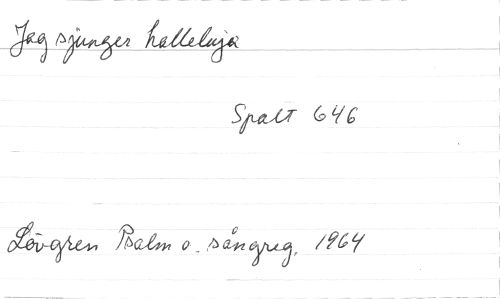 Jag sjunger halleluja
Spalt 646
Lövgren Psalm o. sångreg. 1964